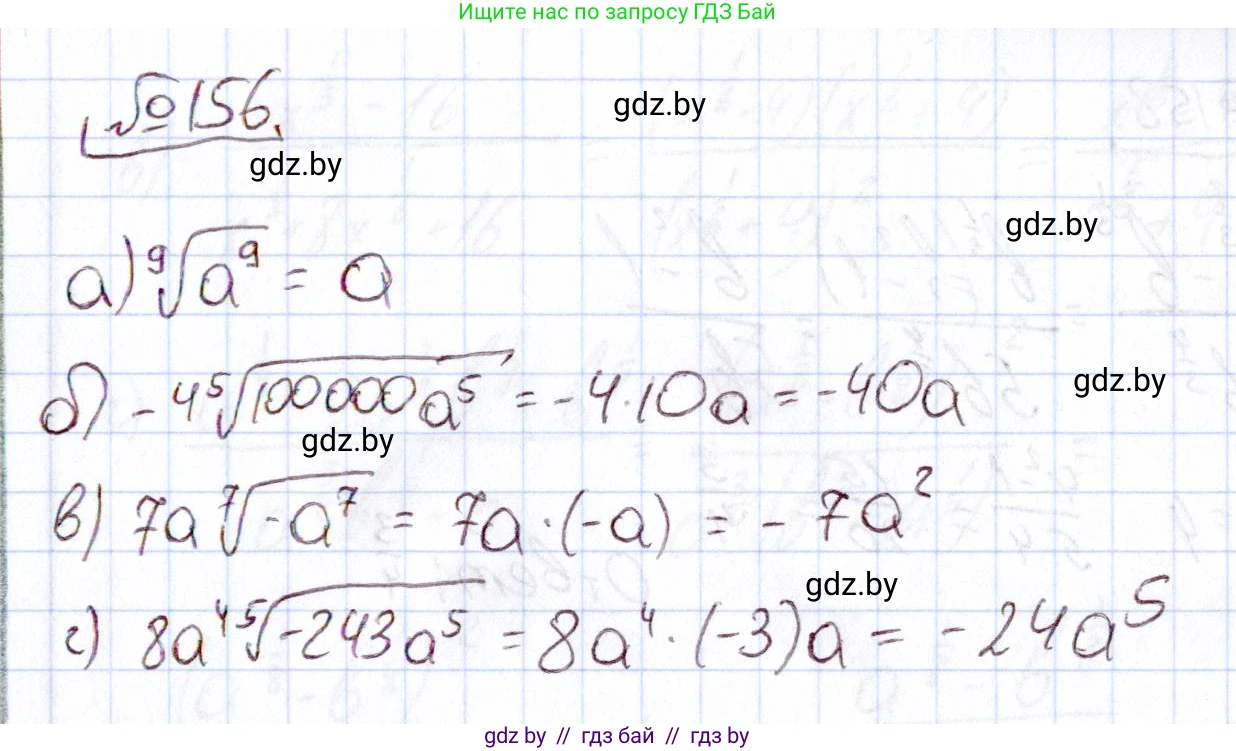 Ищите нас по запросу ГДЗ Бай
№156.
gdz.by
gdz.by
gdz.by
а) ⁹√a⁹ = a
б) -4 ⁵√100000a⁵ = -4·10a = -40a
gdz.by
gdz.by
в) 7a ⁷√-a⁷ = 7a·(-a) = -7a²
gdz.by
г) 8a⁴ ⁵√-243a⁵ = 8a⁴·(-3)a = -24a⁵
gdz by // гдз бай // гдз by